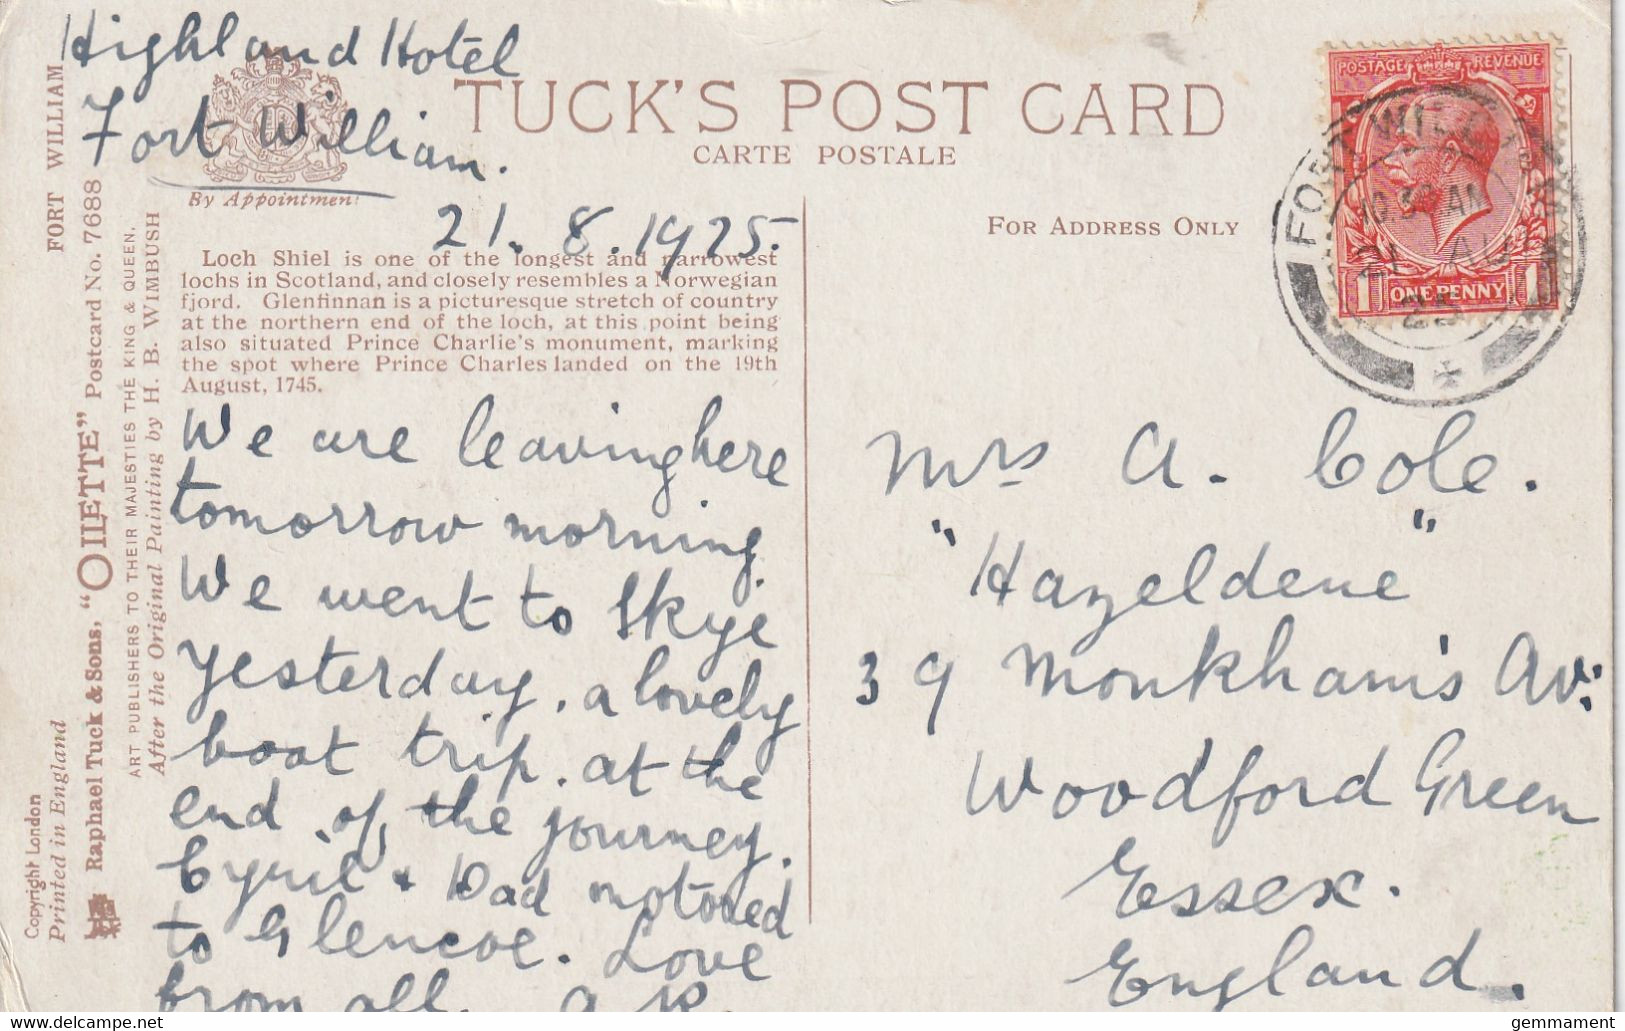 Highland Hotel
Fort William.
21. 8. 1925.
TUCK'S POST CARD
CARTE POSTALE
By Appointment
FOR ADDRESS ONLY
Loch Shiel is one of the longest and narrowest
lochs in Scotland, and closely resembles a Norwegian
fjord. Glenfinnan is a picturesque stretch of country
at the northern end of the loch, at this point being
also situated Prince Charlie's monument, marking
the spot where Prince Charles landed on the 19th
August, 1745.
We are leaving here
tomorrow morning.
We went to Skye
yesterday. a lovely
boat trip. at the
end of the journey.
Cyril & Dad motored
to Glencoe. Love
from all.
Mrs A. Cole.
"Hazeldene"
39 Monkham's Av:
Woodford Green
Essex.
England.
POSTAGE REVENUE
1 ONE PENNY 1
FORT WILLIAM
10.30 AM
21 AU
25
FORT WILLIAM
Raphael Tuck & Sons, "OILETTE" Postcard No. 7688
ART PUBLISHERS TO THEIR MAJESTIES THE KING & QUEEN.
After the Original Painting by H. B. WIMBUSH
Copyright London
Printed in England
delcampe.net
gemmament